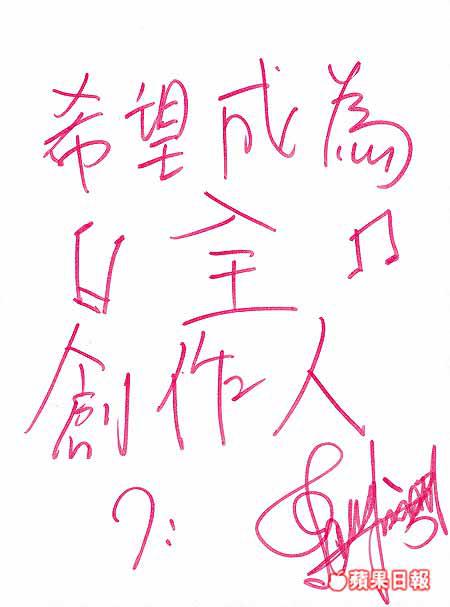 希望成為
全
創作人
蘋果日報